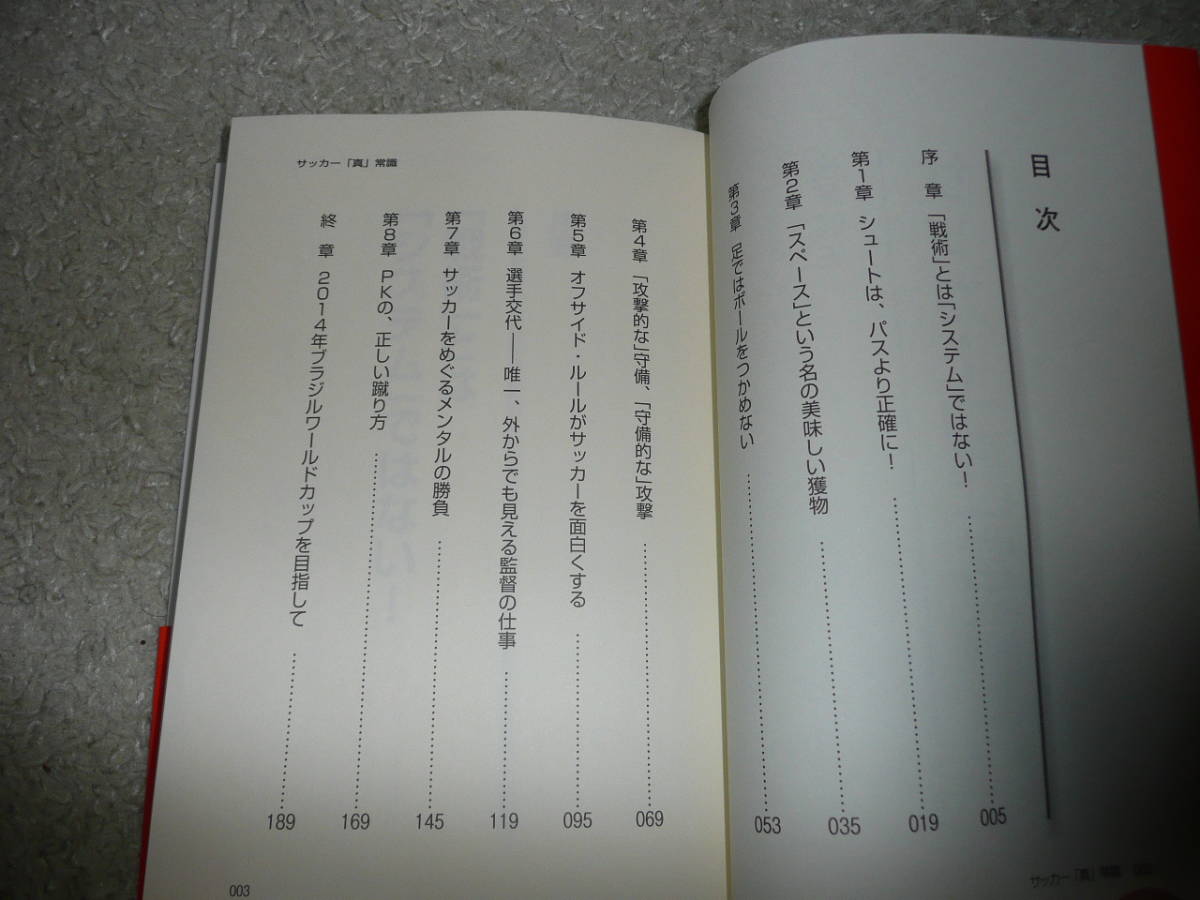 目次
序　章　「戦術」とは「システム」ではない！ 005
第1章　シュートは、パスより正確に！ 019
第2章　「スペース」という名の美味しい獲物 035
第3章　足ではボールをつかめない 053
サッカー「真」常識
サッカー「真」常識
第4章　「攻撃的な」守備、「守備的な」攻撃 069
第5章　オフサイド・ルールがサッカーを面白くする 095
第6章　選手交代――唯一、外からでも見える監督の仕事 119
第7章　サッカーをめぐるメンタルの勝負 145
第8章　ＰＫの、正しい蹴り方 169
終　章　２０１４年ブラジルワールドカップを目指して 189
003